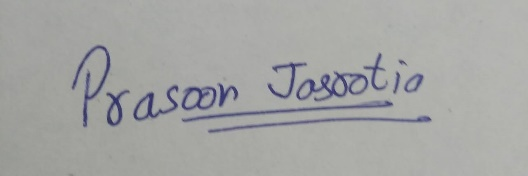 Prasoon Jasrotia